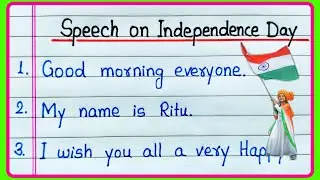 Speech on Independence Day
1. Good morning everyone.
2. My name is Ritu.
3. I wish you all a very Happy